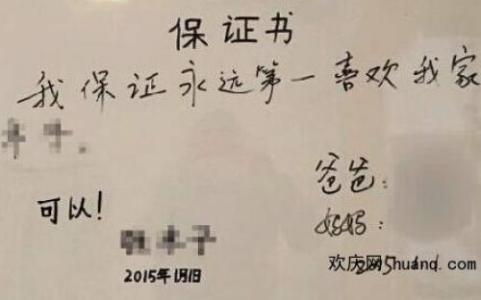 保证书
我保证永远第一喜欢我家
爸爸：
妈妈：
可以！
2015年1月1日
欢庆网huanq.com